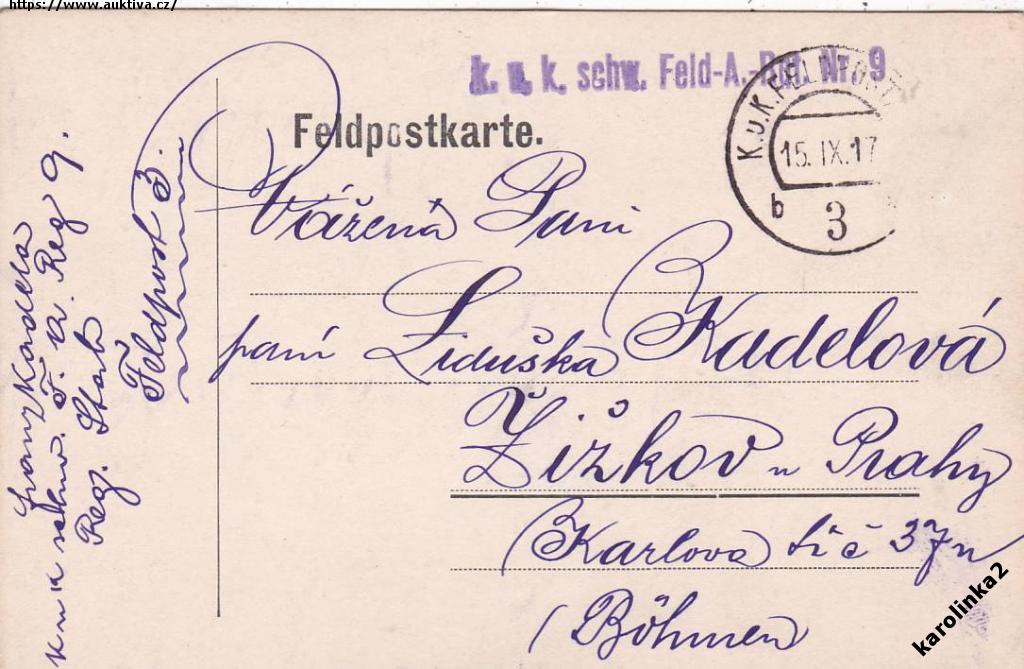 https://www.auktiva.cz/
k. u. k. schw. Feld-A.-Rgt. Nr. 9
Feldpostkarte.
K.u.K. FELDPOST
15. IX. 17
b 3
Vážená Paní
paní Liduška Kadelová
Žižkov u Prahy
Karlova tř č 37n
Böhmen
Franz Kadela
k u k schw. F. a. Reg 9.
Reg. Stab
Feldpost 3.
karolinka2